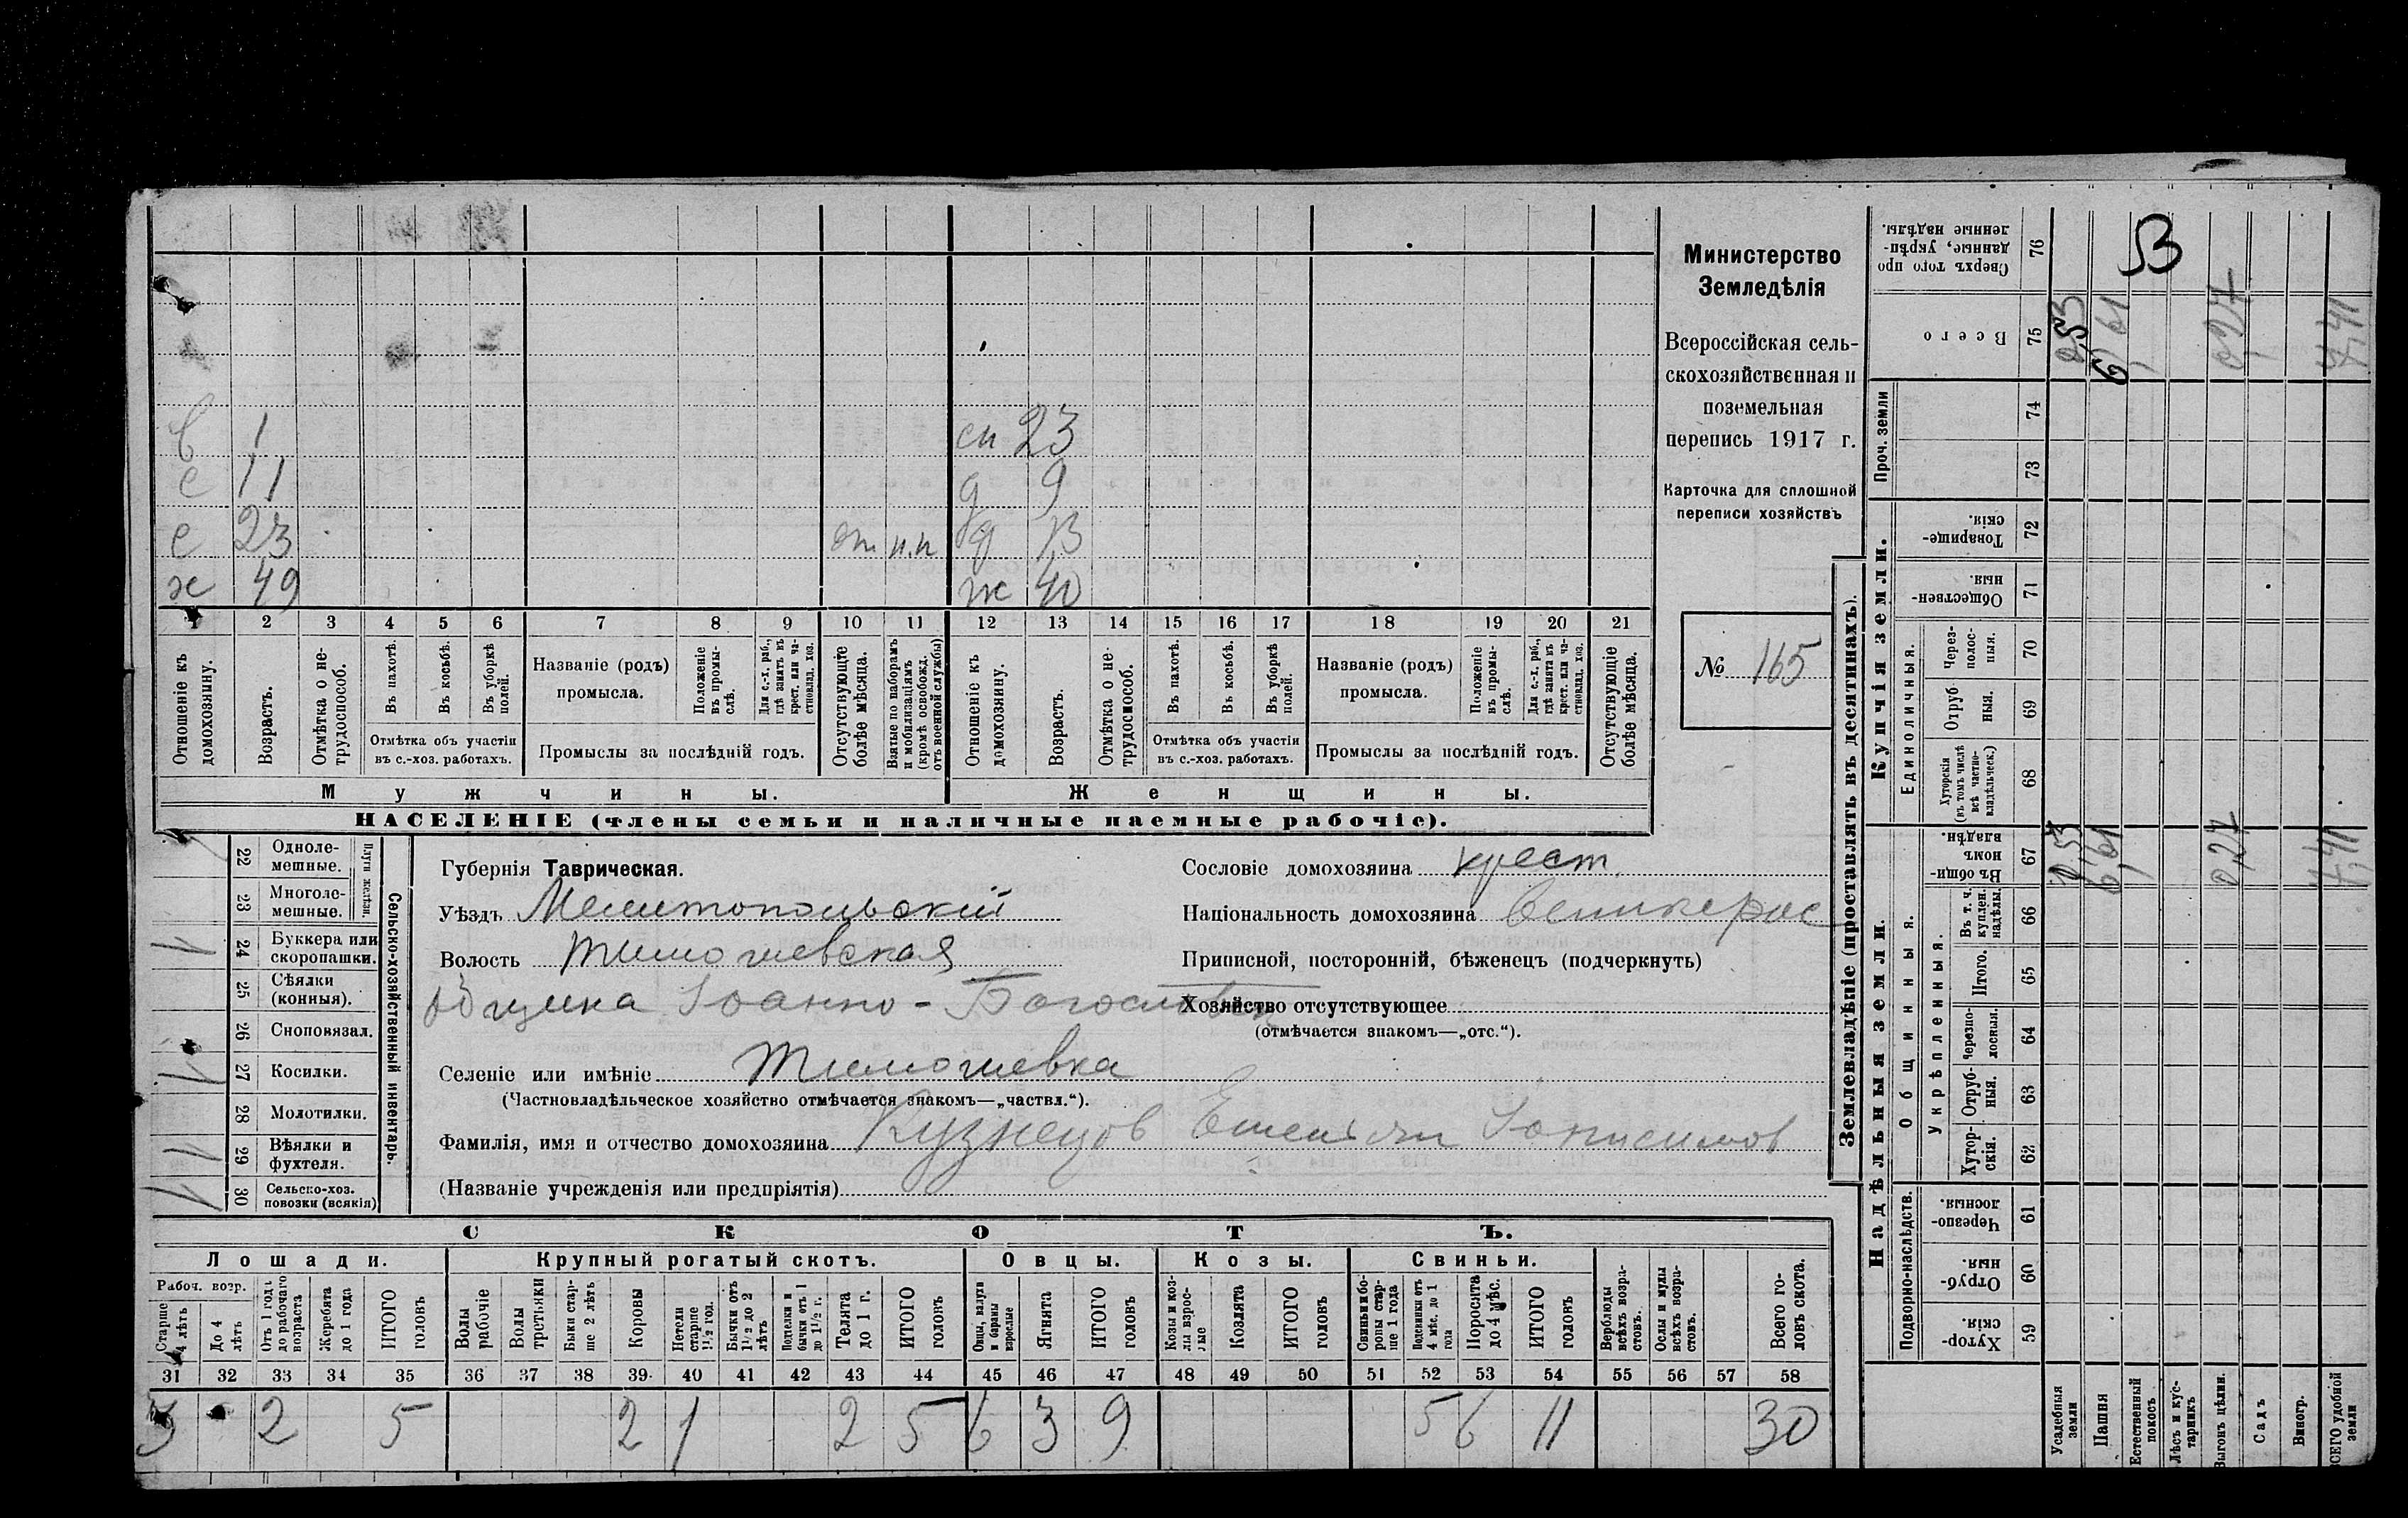 в 1 сн 23
с 11 д 9
с 23 от н.н д 13
х 49 ж 40
1 2 3 4 5 6 7 8 9 10 11 12 13 14 15 16 17 18 19 20 21
Отношеніе къ домохозяину.
Возрастъ.
Отмѣтка о нетрудоспособ.
Въ пахотѣ.
Въ косьбѣ.
Въ уборкѣ полей.
Отмѣтка объ участіи
въ с.-хоз. работахъ.
Названіе (родъ)
промысла.
Положеніе въ промыслѣ.
Для с.-х. раб., гдѣ занятъ въ крест. или частновлад. хоз.
Промыслы за послѣдній годъ.
Отсутствующіе болѣе мѣсяца.
Взятые по наборамъ и мобилизаціямъ (кромѣ освобожд. отъ военной службы)
Отношеніе къ домохозяину.
Возрастъ.
Отмѣтка о нетрудоспособ.
Въ пахотѣ.
Въ косьбѣ.
Въ уборкѣ полей.
Отмѣтка объ участіи
въ с.-хоз. работахъ.
Названіе (родъ)
промысла.
Положеніе въ промыслѣ.
Для с.-х. раб., гдѣ занята въ крест. или частновлад. хоз.
Промыслы за послѣдній годъ.
Отсутствующіе болѣе мѣсяца.
Мужчины.
Женщины.
НАСЕЛЕНІЕ (члены семьи и наличные наемные рабочіе).
Министерство
Земледѣлія
Всероссійская сель-
скохозяйственная и
поземельная
перепись 1917 г.
Карточка для сплошной
переписи хозяйствъ
№ 165
22 Одноле-
мешные.
23 Многоле-
мешные.
Плуги желѣзн.
24 Буккера или
скоропашки.
25 Сѣялки
(конныя).
26 Сноповязал.
27 Косилки.
28 Молотилки.
29 Вѣялки и
фухтеля.
30 Сельско-хоз.
повозки (всякія)
Сельско-хозяйственный инвентарь.
Губернія Таврическая.
Уѣздъ Мелитопольскій
Волость Тимошевская
община Іоанно-Богословск
Селеніе или имѣніе Тимошевка
(Частновладѣльческое хозяйство отмѣчается знакомъ—„частвл.“).
Фамилія, имя и отчество домохозяина Кузнецов Емельян
(Названіе учрежденія или предпріятія)
Сословіе домохозяина крест.
Національность домохозяина великорос
Приписной, посторонній, бѣженецъ (подчеркнуть)
Хозяйство отсутствующее
(отмѣчается знакомъ—„отс.“).
СКОТЪ.
Лошади. Крупный рогатый скотъ. Овцы. Козы. Свиньи.
Рабоч. возр.
Старше 4 лѣтъ
До 4 лѣтъ
Отъ 1 года до рабочаго возраста
Жеребята до 1 года
ИТОГО головъ
Волы рабочіе
Волы третьяки
Быки старше 2 лѣтъ
Коровы
Нетели старше 1½ год.
Бычки отъ 1½ до 2 лѣтъ
Подтелки и бычки отъ 1 до 1½ г.
Телята до 1 г.
ИТОГО головъ
Овцы, валухи и бараны взрослые
Ягнята
ИТОГО головъ
Козы и козлы взрослые
Козлята
ИТОГО головъ
Свиньи и боровы старше 1 года
Подсвинки отъ 4 мѣс. до 1 года
Поросята до 4 мѣс.
ИТОГО головъ
Верблюды всѣхъ возрастовъ.
Ослы и мулы всѣхъ возрастовъ.
Всего головъ скота.
31 32 33 34 35 36 37 38 39 40 41 42 43 44 45 46 47 48 49 50 51 52 53 54 55 56 57 58
3 2 5 2 1 2 5 6 3 9 5 6 11 30
Землевладѣніе (проставлять въ десятинахъ).
Надѣльныя земли.
Купчія земли.
Проч. земли
Подворно-наслѣдств.
Общинныя.
Укрѣпленныя.
Единоличныя.
Хутор-
скія. 59
Отруб-
ныя. 60
Черезпо-
лосныя. 61
Хутор-
скія. 62
Отруб-
ныя. 63
Черезпо-
лосныя. 64
Итого. 65
Въ т. ч.
куплен.
надѣлы. 66
Въ общи-
номъ
владѣн. 67
Хуторскія
(въ томъ числѣ
всѣ частно-
владѣльческ.) 68
Отруб
ныя. 69
Через-
полос-
ныя. 70
Обществен-
ныя. 71
Товарище-
скія. 72
73
74
Всего 75
Сверхъ того про
данные, укрѣп-
ленные надѣлы. 76
В
Усадебныя земли 0,53 0,53
Пашня 6,61 6,61
Естественный покосъ
Лѣсъ и кустарникъ
Выгонъ цѣлин. 0,27 0,27
Садъ
Виногр.
ВСЕГО удобной земли 7,41 7,41